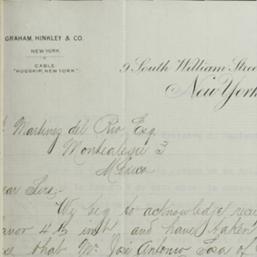 GRAHAM, HINKLEY & CO.
NEW YORK.
CABLE
"RODGRIP, NEW YORK."
9 South William Stree
New York
Martinez del Rio Esq.
Montealegre 3
Mexico
ear Sir:
We beg to acknowledge rece
avor 4th inst and have taken
se that Mr. José Antonio